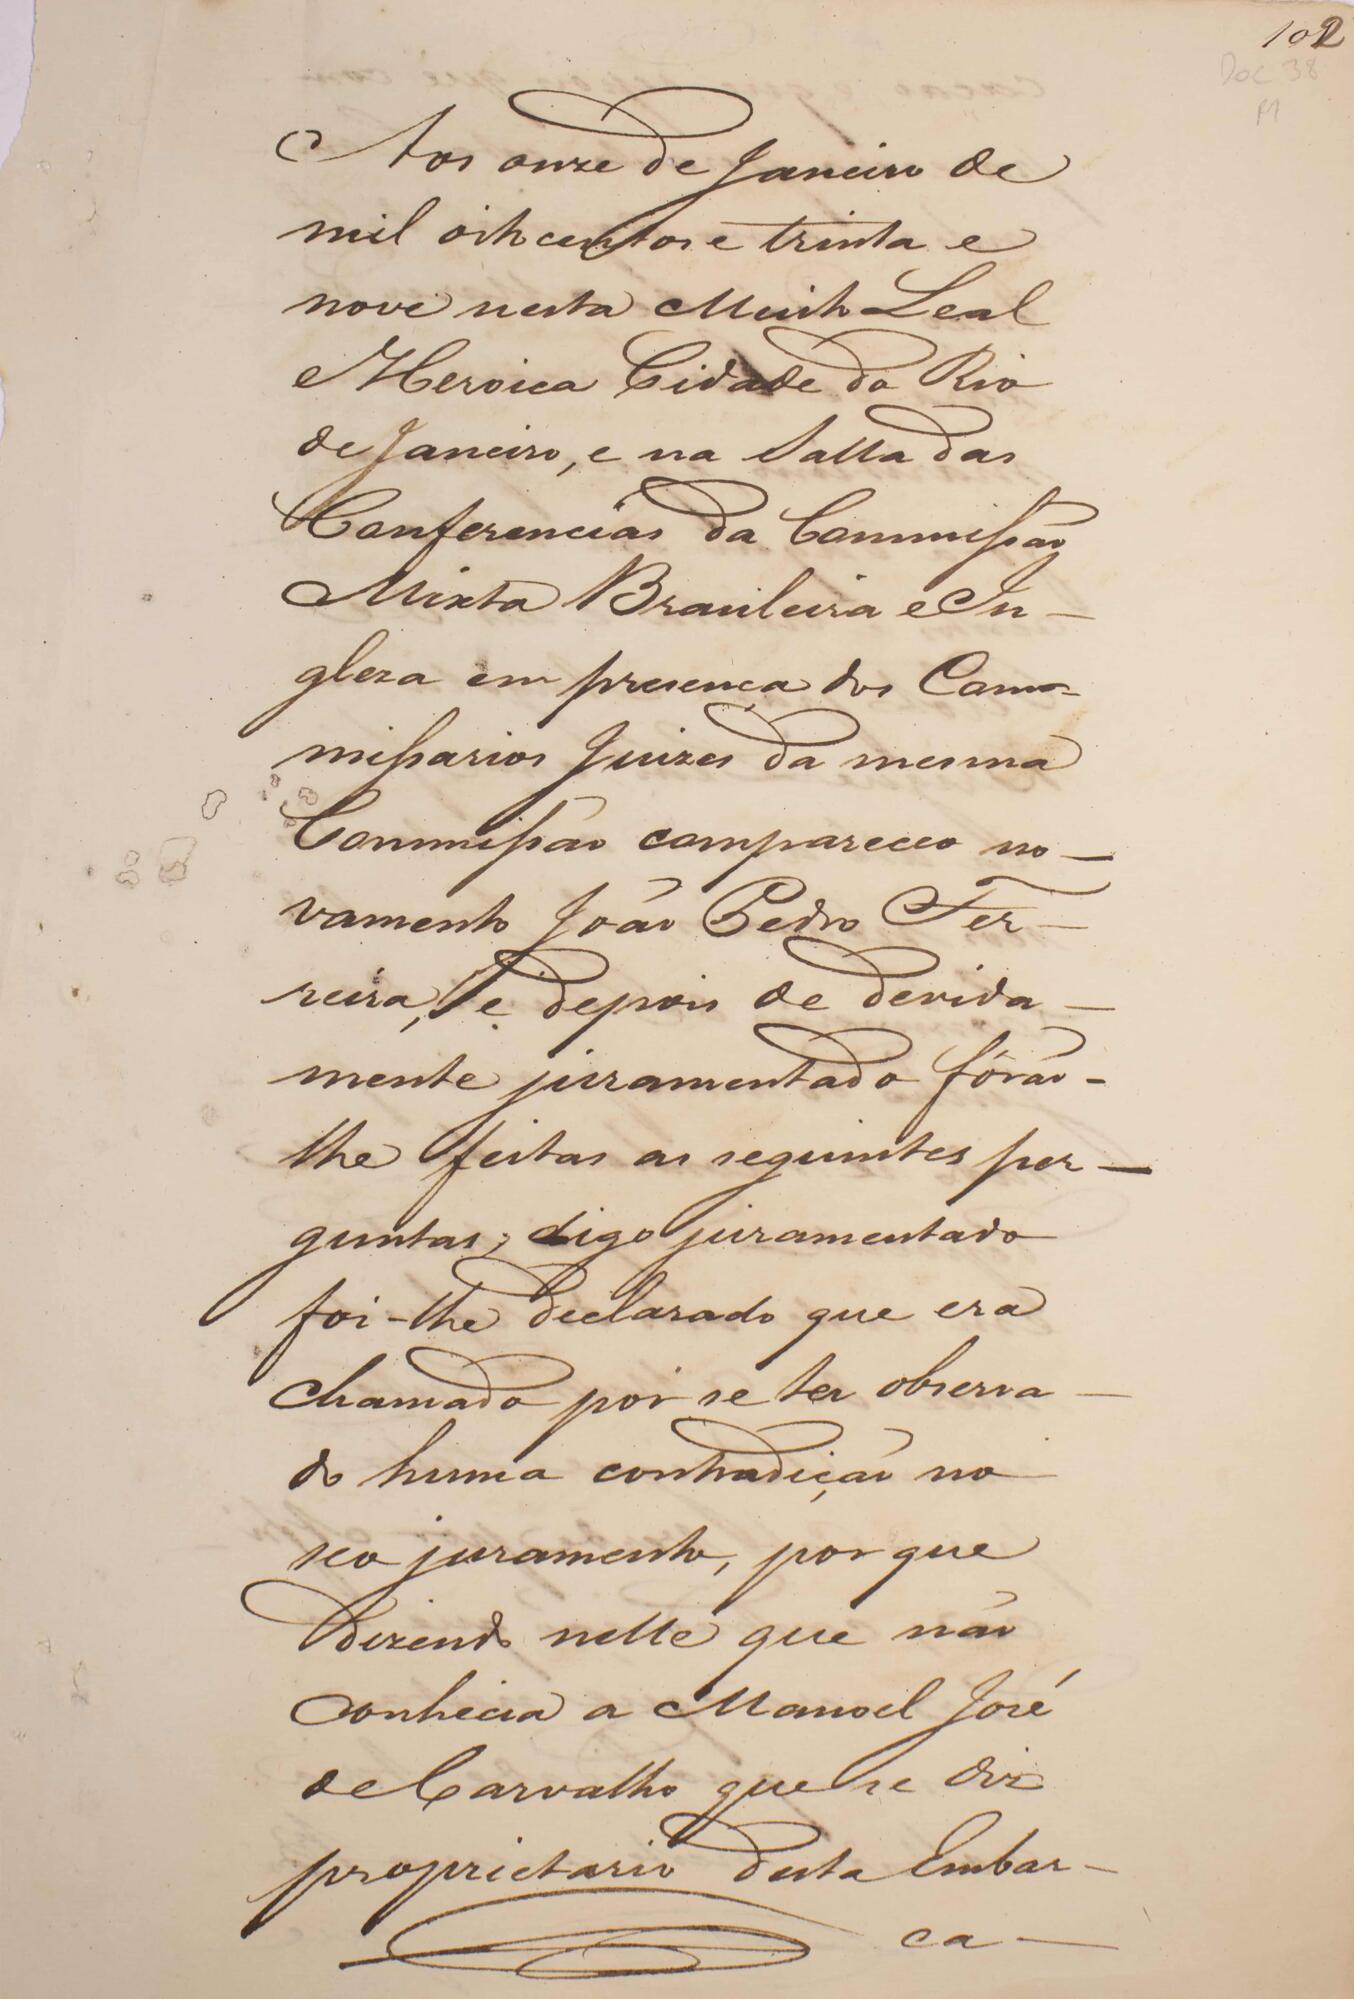 102
Doc 38
P1
Aos onze de Janeiro de
mil oitocentos e trinta e
nove nesta Muito Leal
e Heroica Cidade do Rio
de Janeiro, e na Salla das
Conferencias da Commissão
Mixta Brasileira e In-
gleza em presença dos Com-
missarios Juizes da mesma
Commissão compareceo no-
vamente João Pedro Fer-
reira, e depois de devida-
mente juramentado fórão-
lhe feitas as seguintes per-
guntas, digo juramentado
foi-lhe declarado que era
chamado por se ter observa-
do huma contradição no
seo juramento, por que
dizendo nelle que não
conhecia a Manoel José
de Carvalho que se diz
proprietario desta Embar-
ca-